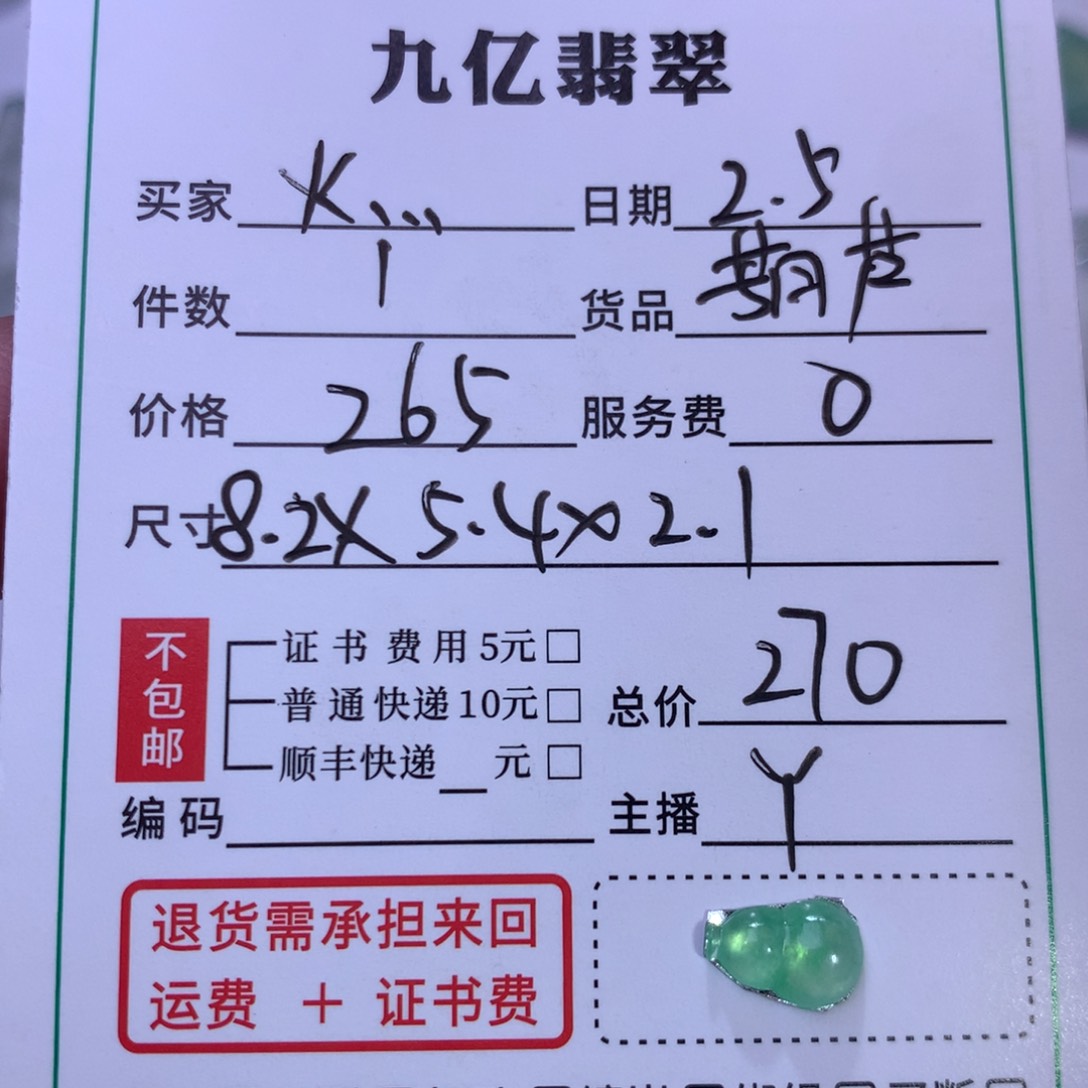 九亿翡翠
买家 K... 日期 2.5
件数 1 货品 葫芦
价格 265 服务费 0
尺寸 8.2X 5.4X2.1
不包邮
证书费用5元□
普通快递10元□ 总价 270
顺丰快递__元□
编码 主播 Y
退货需承担来回
运费 + 证书费